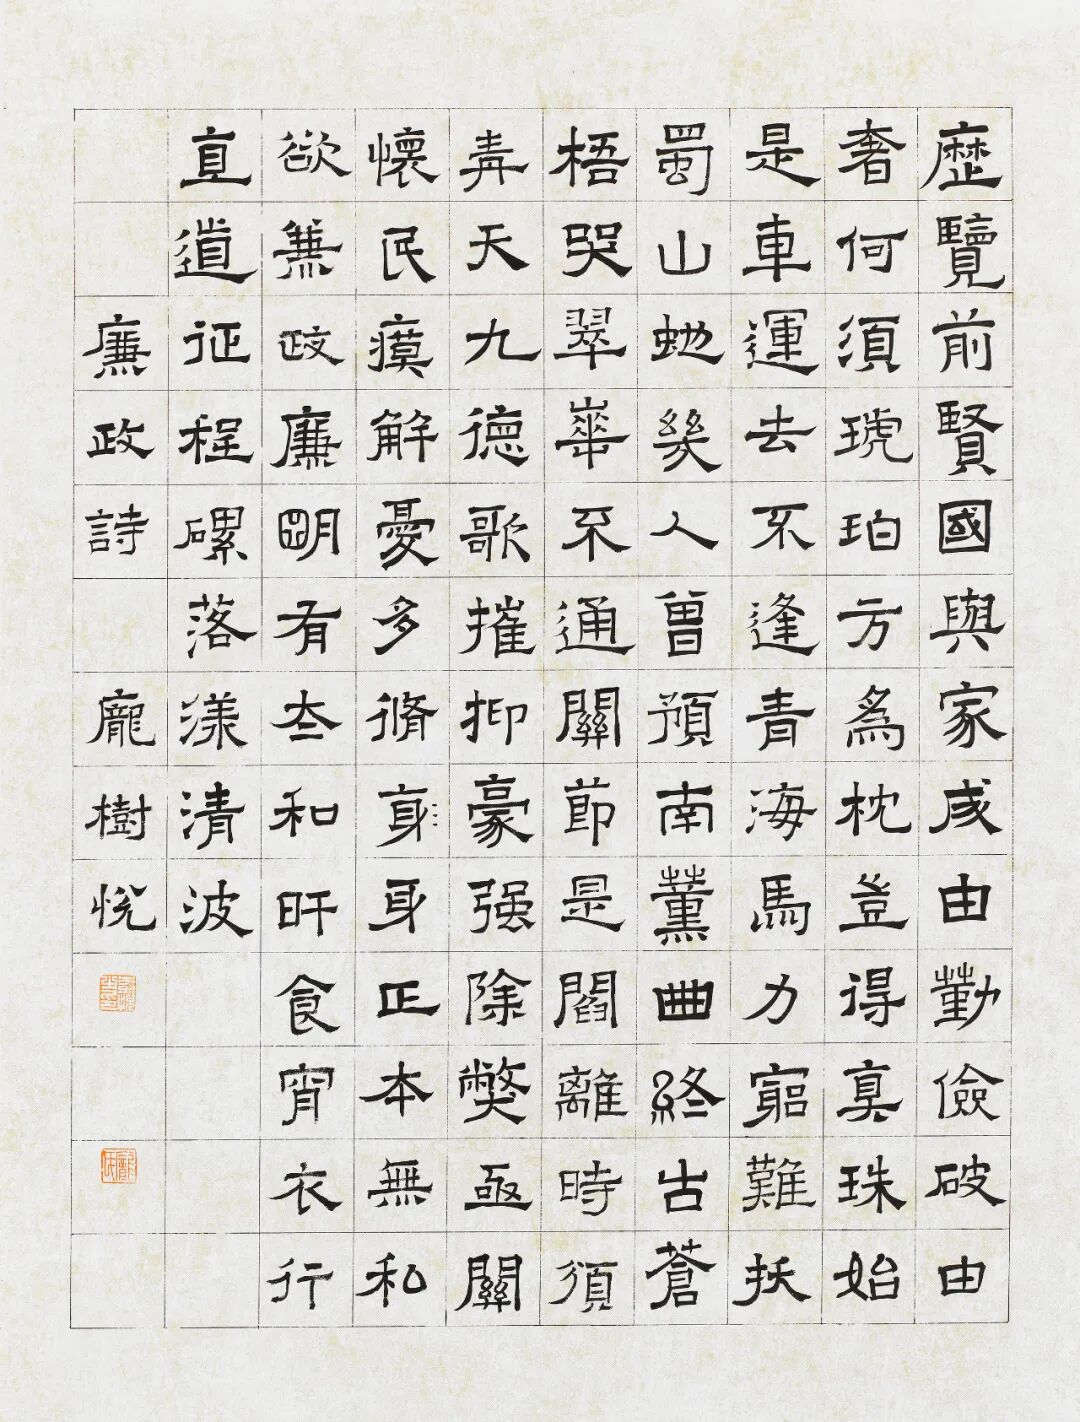 歷覽前賢國與家成由勤儉破由
奢何須琥珀方為枕豈得真珠始
是車運去不逢青海馬力窮難拔
蜀山虵幾人曾預南薰曲終古蒼
梧哭翠華不通關節是閻離時須
青天九德歌摧抑豪强除弊亟關
懷民瘼解憂多脩身身正本無私
欲兼政廉明有太和旰食宵衣行
直道征程磥落漾清波
廉政詩 龐樹悅